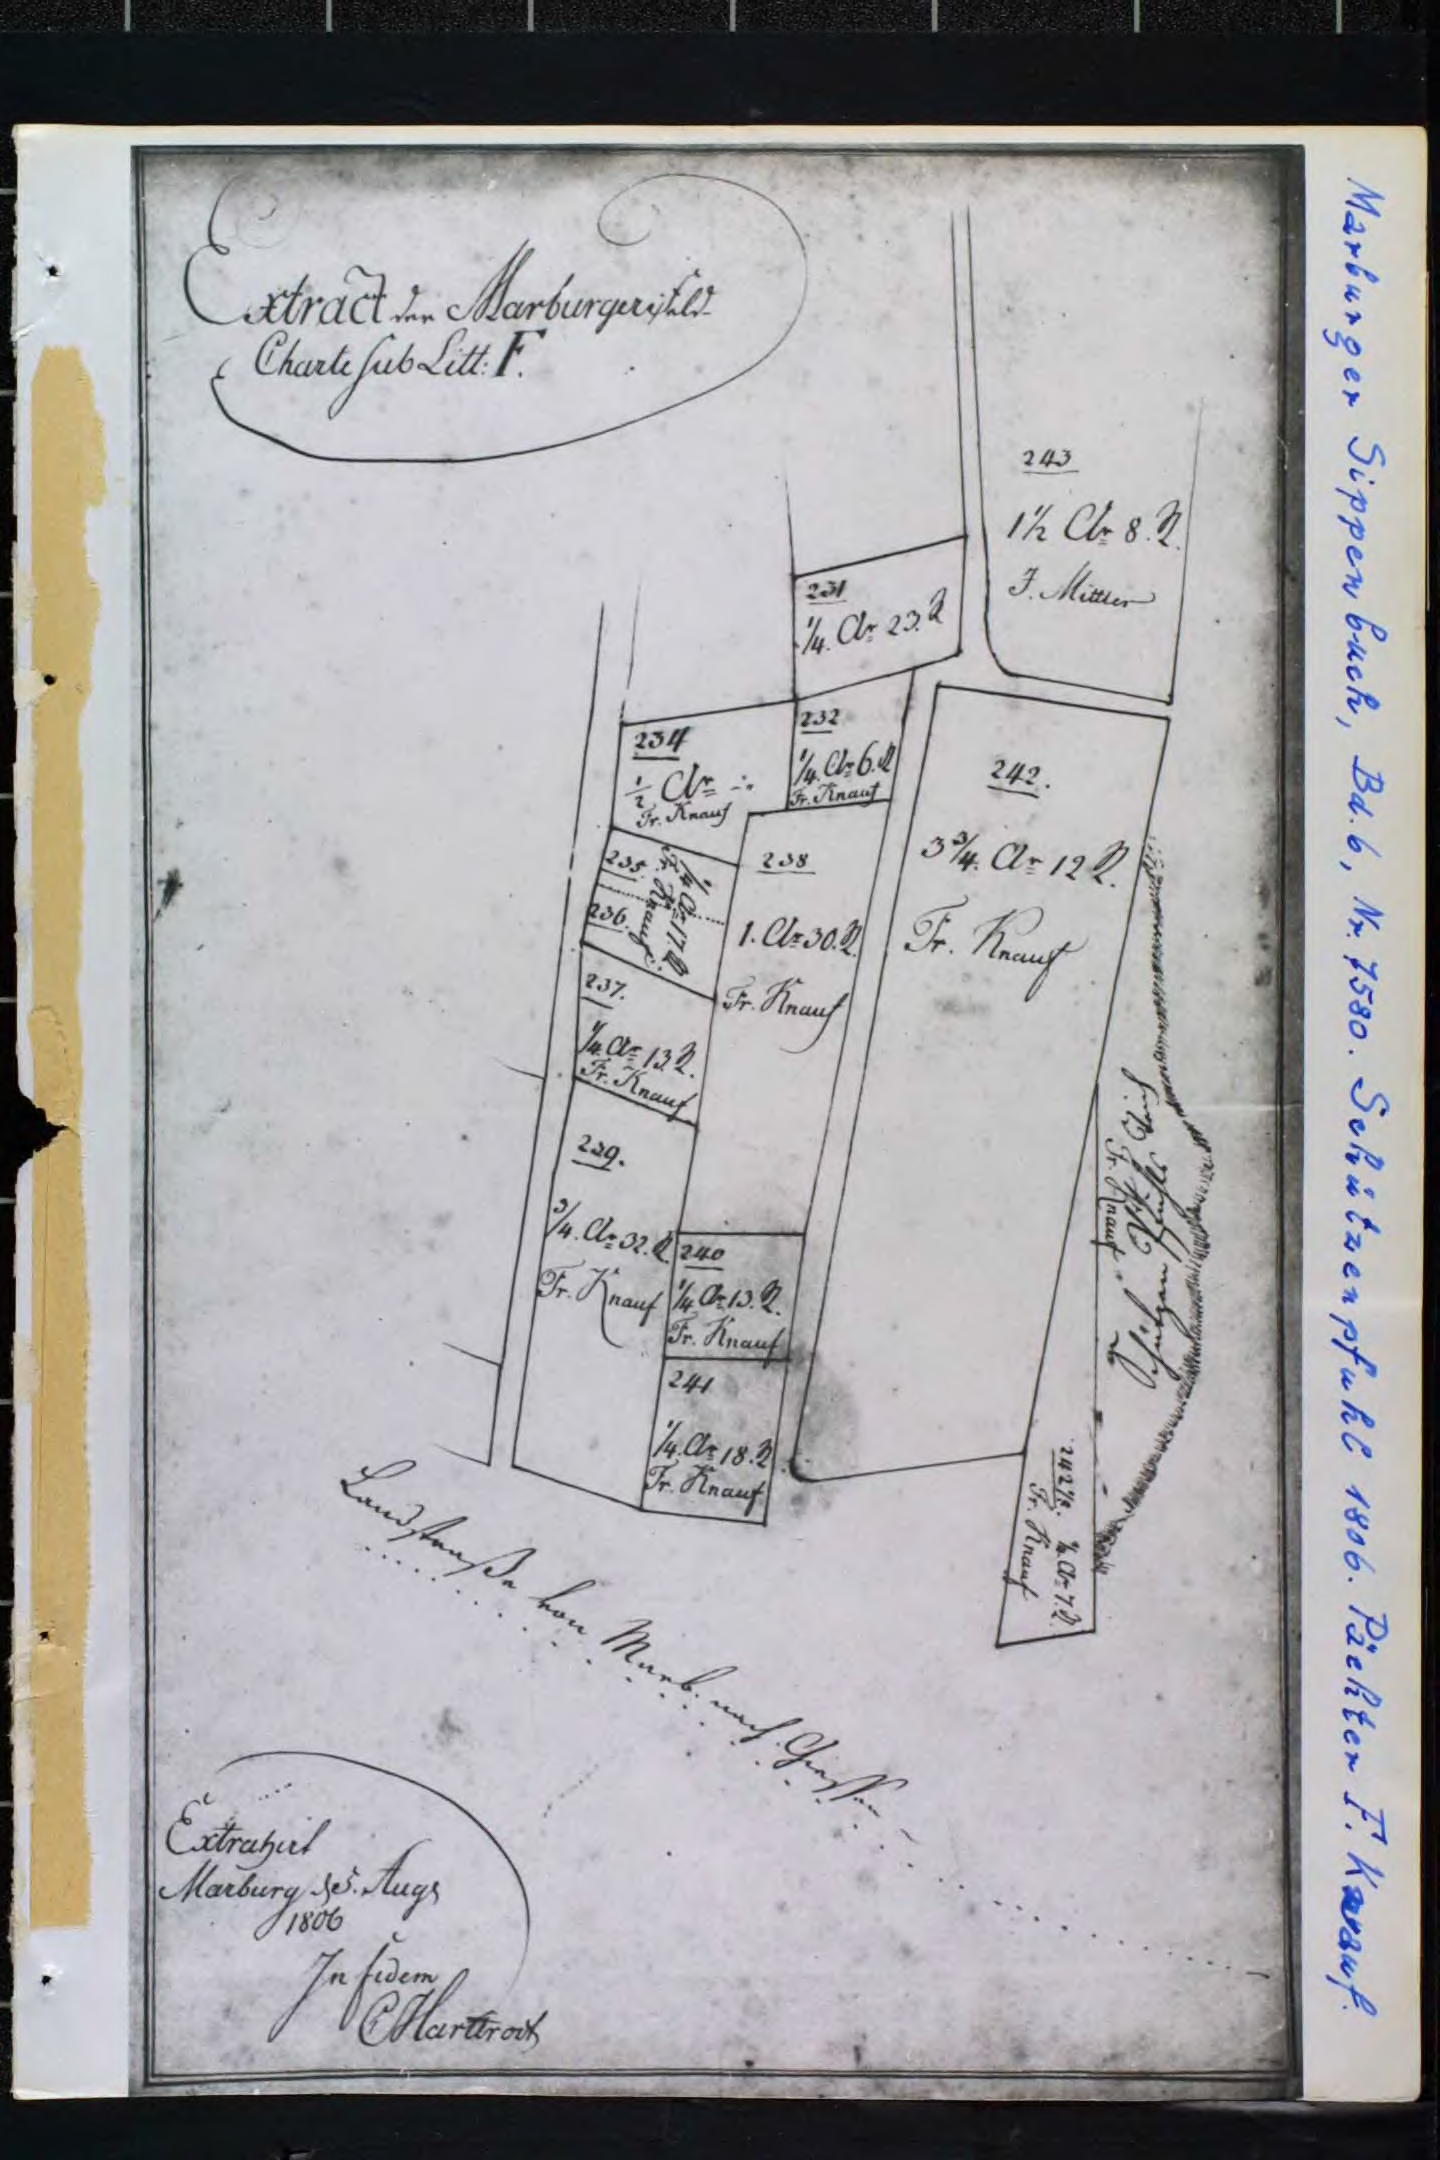 Extract der Marburger Feld-
Charte sub Litt: F.
243
1½ Ar 8. R.
J. Mittler
231
¼. Ar 23. R
232
¼. Ar 6. R
Fr. Knauf
234
½ Ar ∴
Fr. Knauf
235.
236.
¼ Ar 17. R
Fr. Knauf
238
1. Ar 30. R.
Fr. Knauf
242.
3¾. Ar 12 R.
Fr. Knauf
237.
¼. Ar 13 R.
Fr. Knauf
239.
¾. Ar 32. R
Fr. Knauf
240
¼ Ar 13. R.
Fr. Knauf
241
¼. Ar 18. R
Fr. Knauf
Schützen Pfuhl
Fr. Knauf
242½. ¼ Ar 7. R.
Fr. Knauf
Landstraße von Marb. nach Giessen
Extrahirt
Marburg d 5. Aug
1806
In fidem
C Hartrodt
Marburger Sippenbuch, Bd. 6, Nr. 7580. Schützenpfuhl 1806. Pächter F. Knauf.